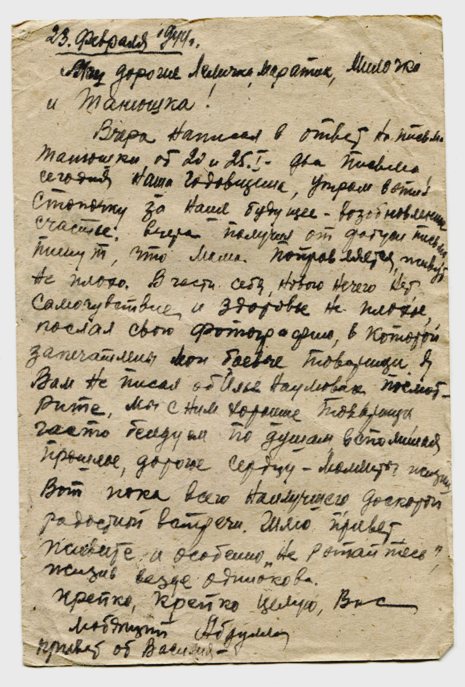 23. Февраля 1944г.
Мои дорогие Маратик, Милочка
и Танюшка!
Вчера написал в ответ на письма
Танюшки, от 20 и 25.I- два письма
сегодня наша годовщина, утром
стопочку за наше будущее - возобновление
счастье. Вчера получил от
пишут, что мама поправляется, живут
не плохо. В части себя, нового нечего нет
самочувствие и здоровье не плохие,
послал свою фотографию, в которой
запечатлены мои боевые товарищи. Я
Вам не писал об Илье Наумовиче посмот-
рите, мы с ним хорошие товарищи
часто беседуем по душам вспоминая
прошлое, дорогие сердцу - моменты жизни
Вот пока всего наилучшего до скорой
радостной встречи. Шлю привет
живите и особенно "не ротайтесь",
жизнь везде одинокова.
крепко, крепко целую, Вас
любящий Абрумка
привет от Василия-